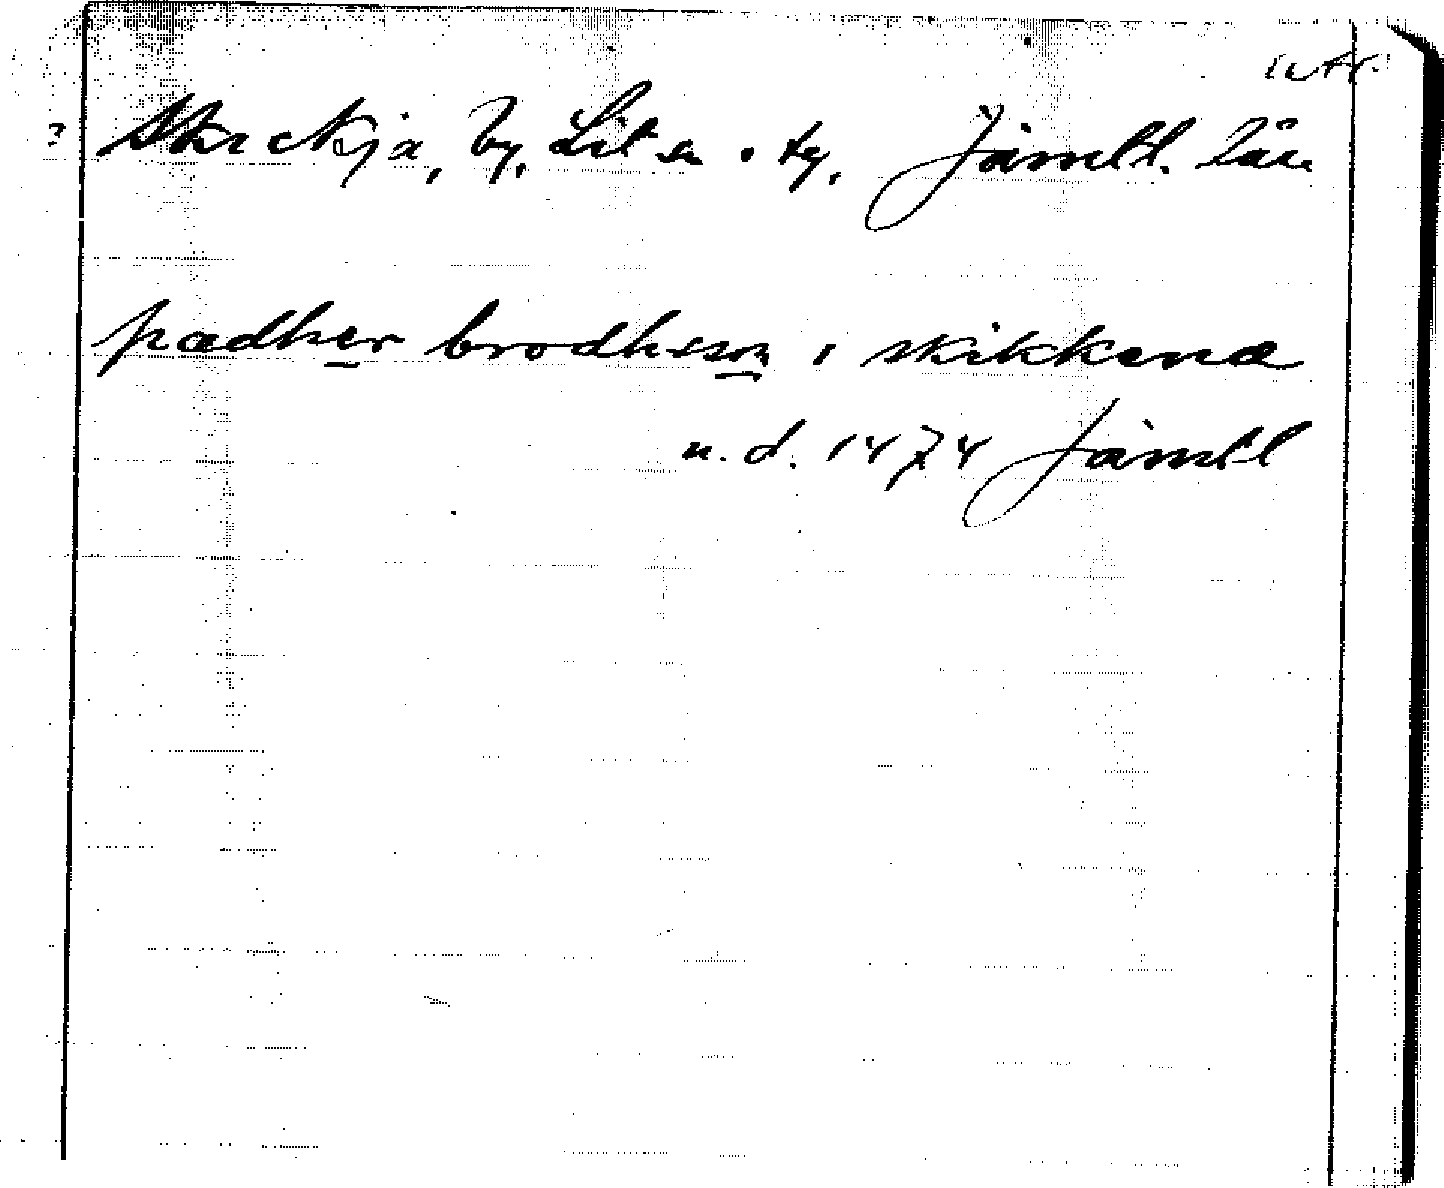 ? Skickja, by, Lits sn o tg, Jämtl. län
pædher brodhsson i skikkenæ
u. d. 1474 Jämtl